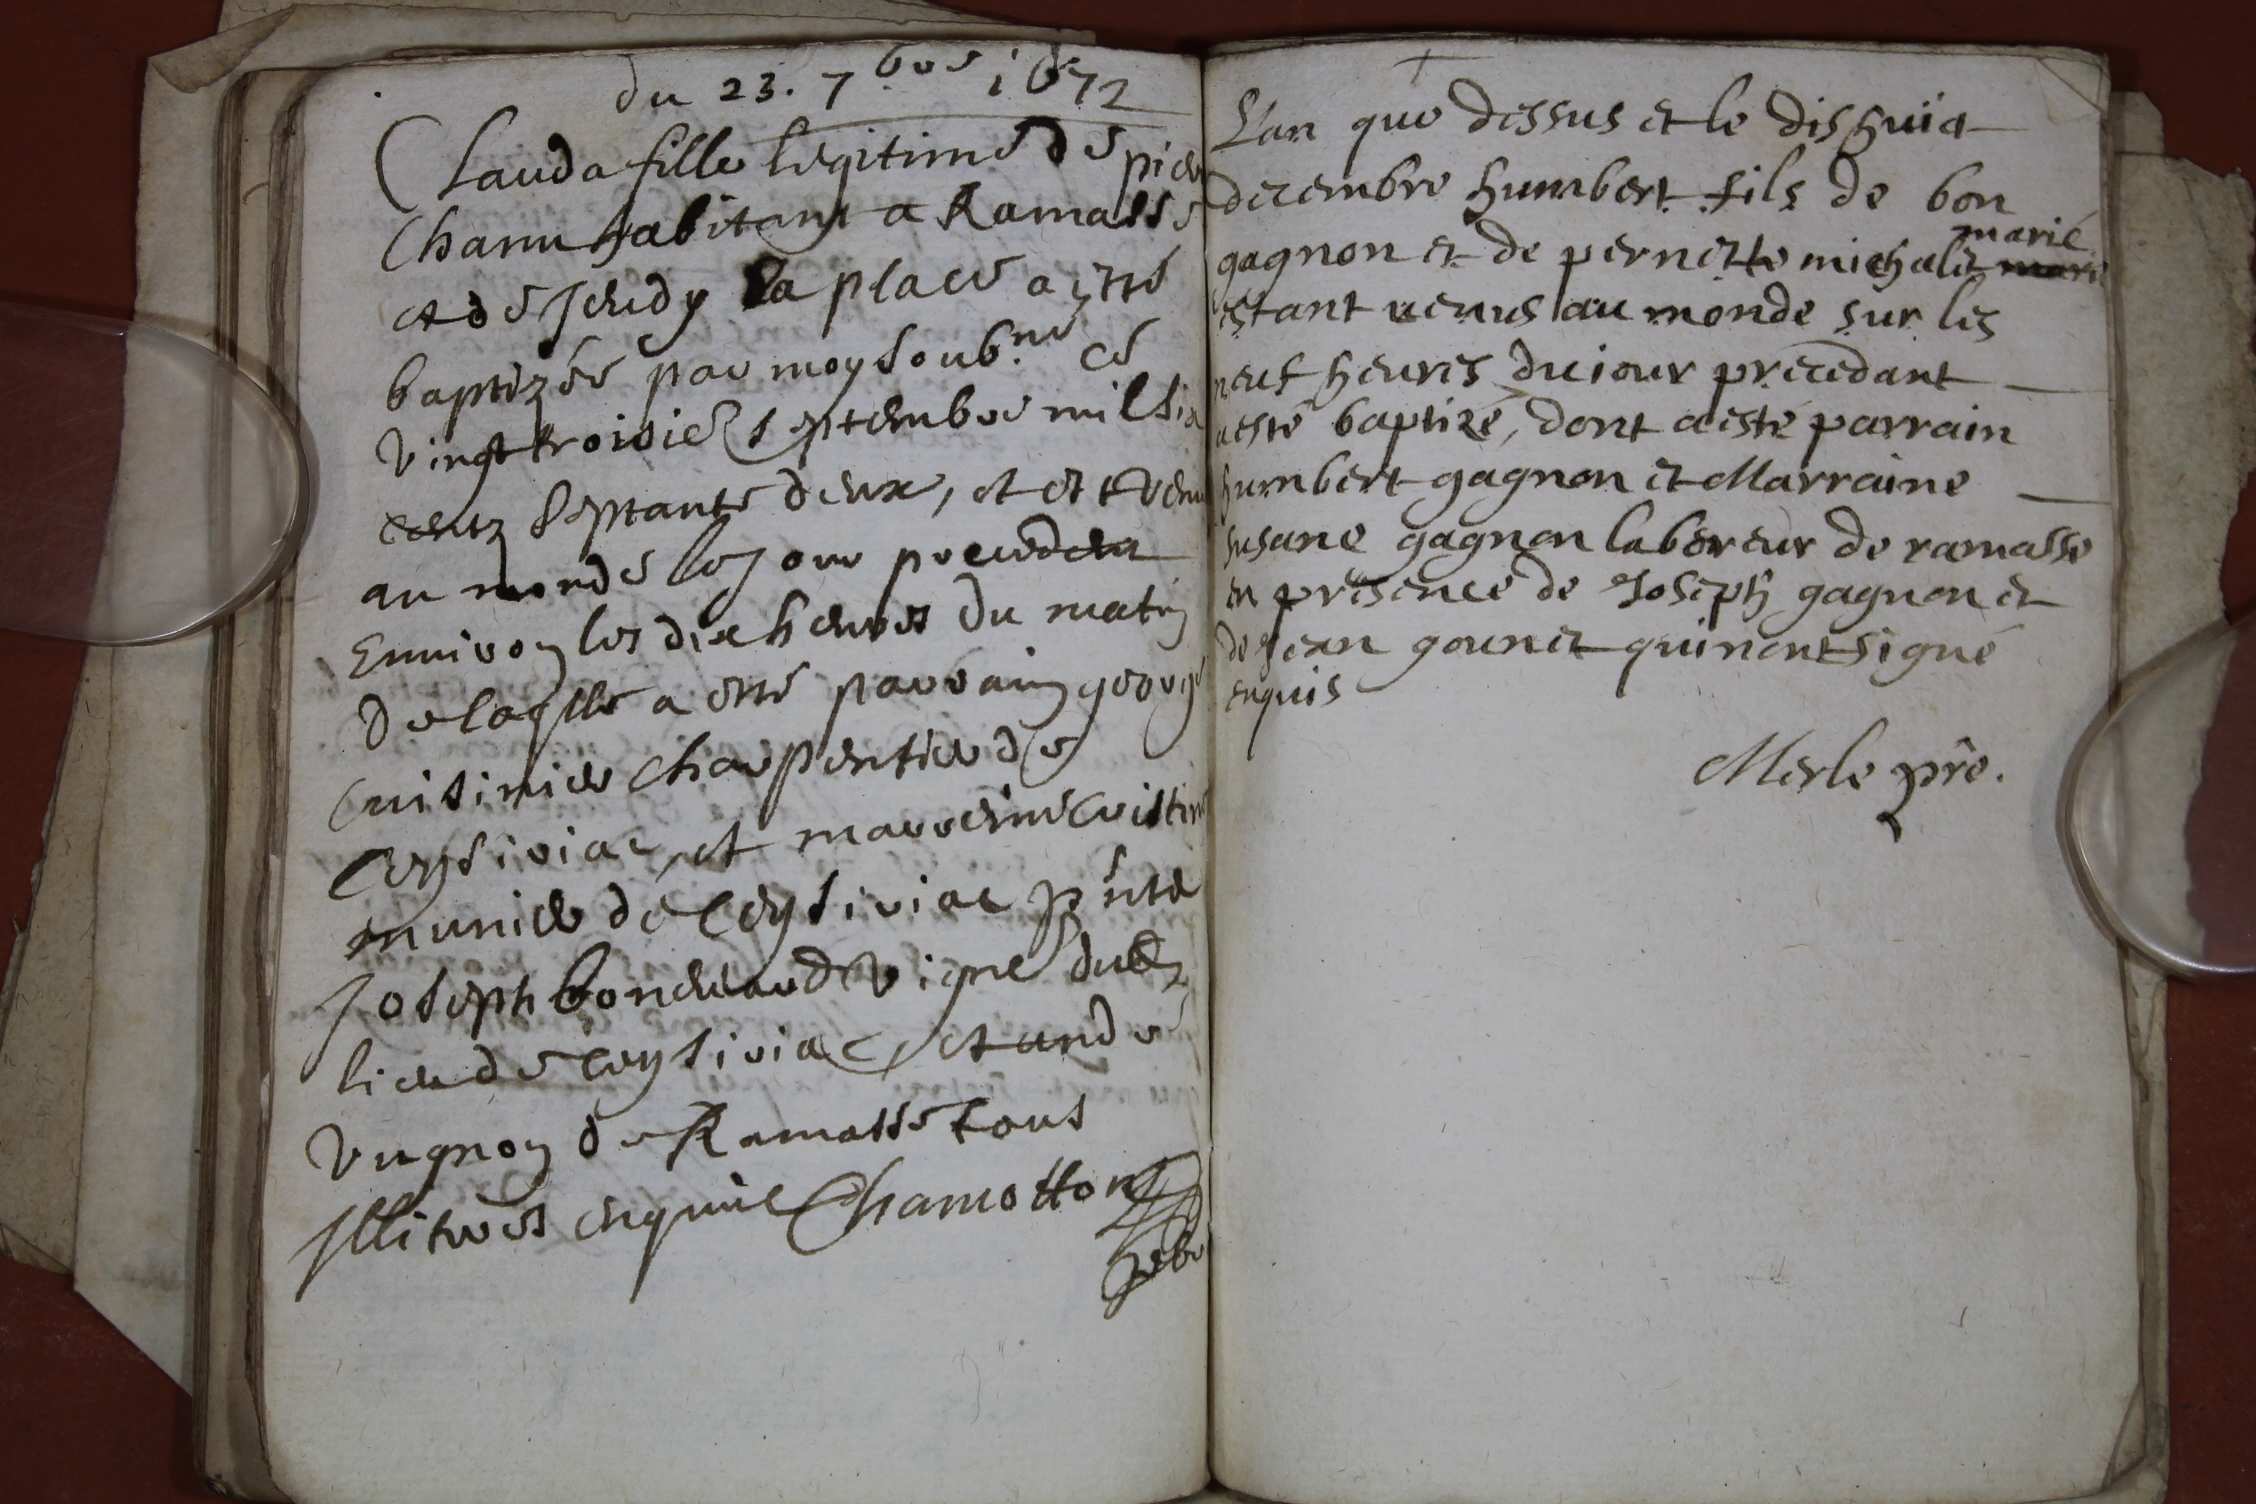 du 23. 7bre 1672
Clauda fille legitime de pier
Chanu habitant a Ramasse
et de Jeudy La place a esté
baptizée par moy soubné ce
vingt troisie septembre mil six
centz septante deux, et est venu
au monde le jour precedent
Environ les dix heures du matin
De laqlle a esté parrain george
Cuisinier charpentier de
Ceysiriac, et marreine Cristine
munier de Ceysiriac pnte
Joseph bonerard vigne du
lieu de Ceysiriac, et andre
vugnon de Ramasse tous
Illitres enquis Chamotton
pbr
L'an que dessus et le dishuit
decembre humbert fils de bon
gagnon et de pernette michalet marié
estant venus au monde sur les
neuf heures du iour precedant
a esté baptizé, dont a esté parrain
humbert gagnon et Marraine
susane gagnon laboreur de ramasse
en presence de Joseph gagnon et
de Jean gounet qui nont signé
enquis
Merle pre.